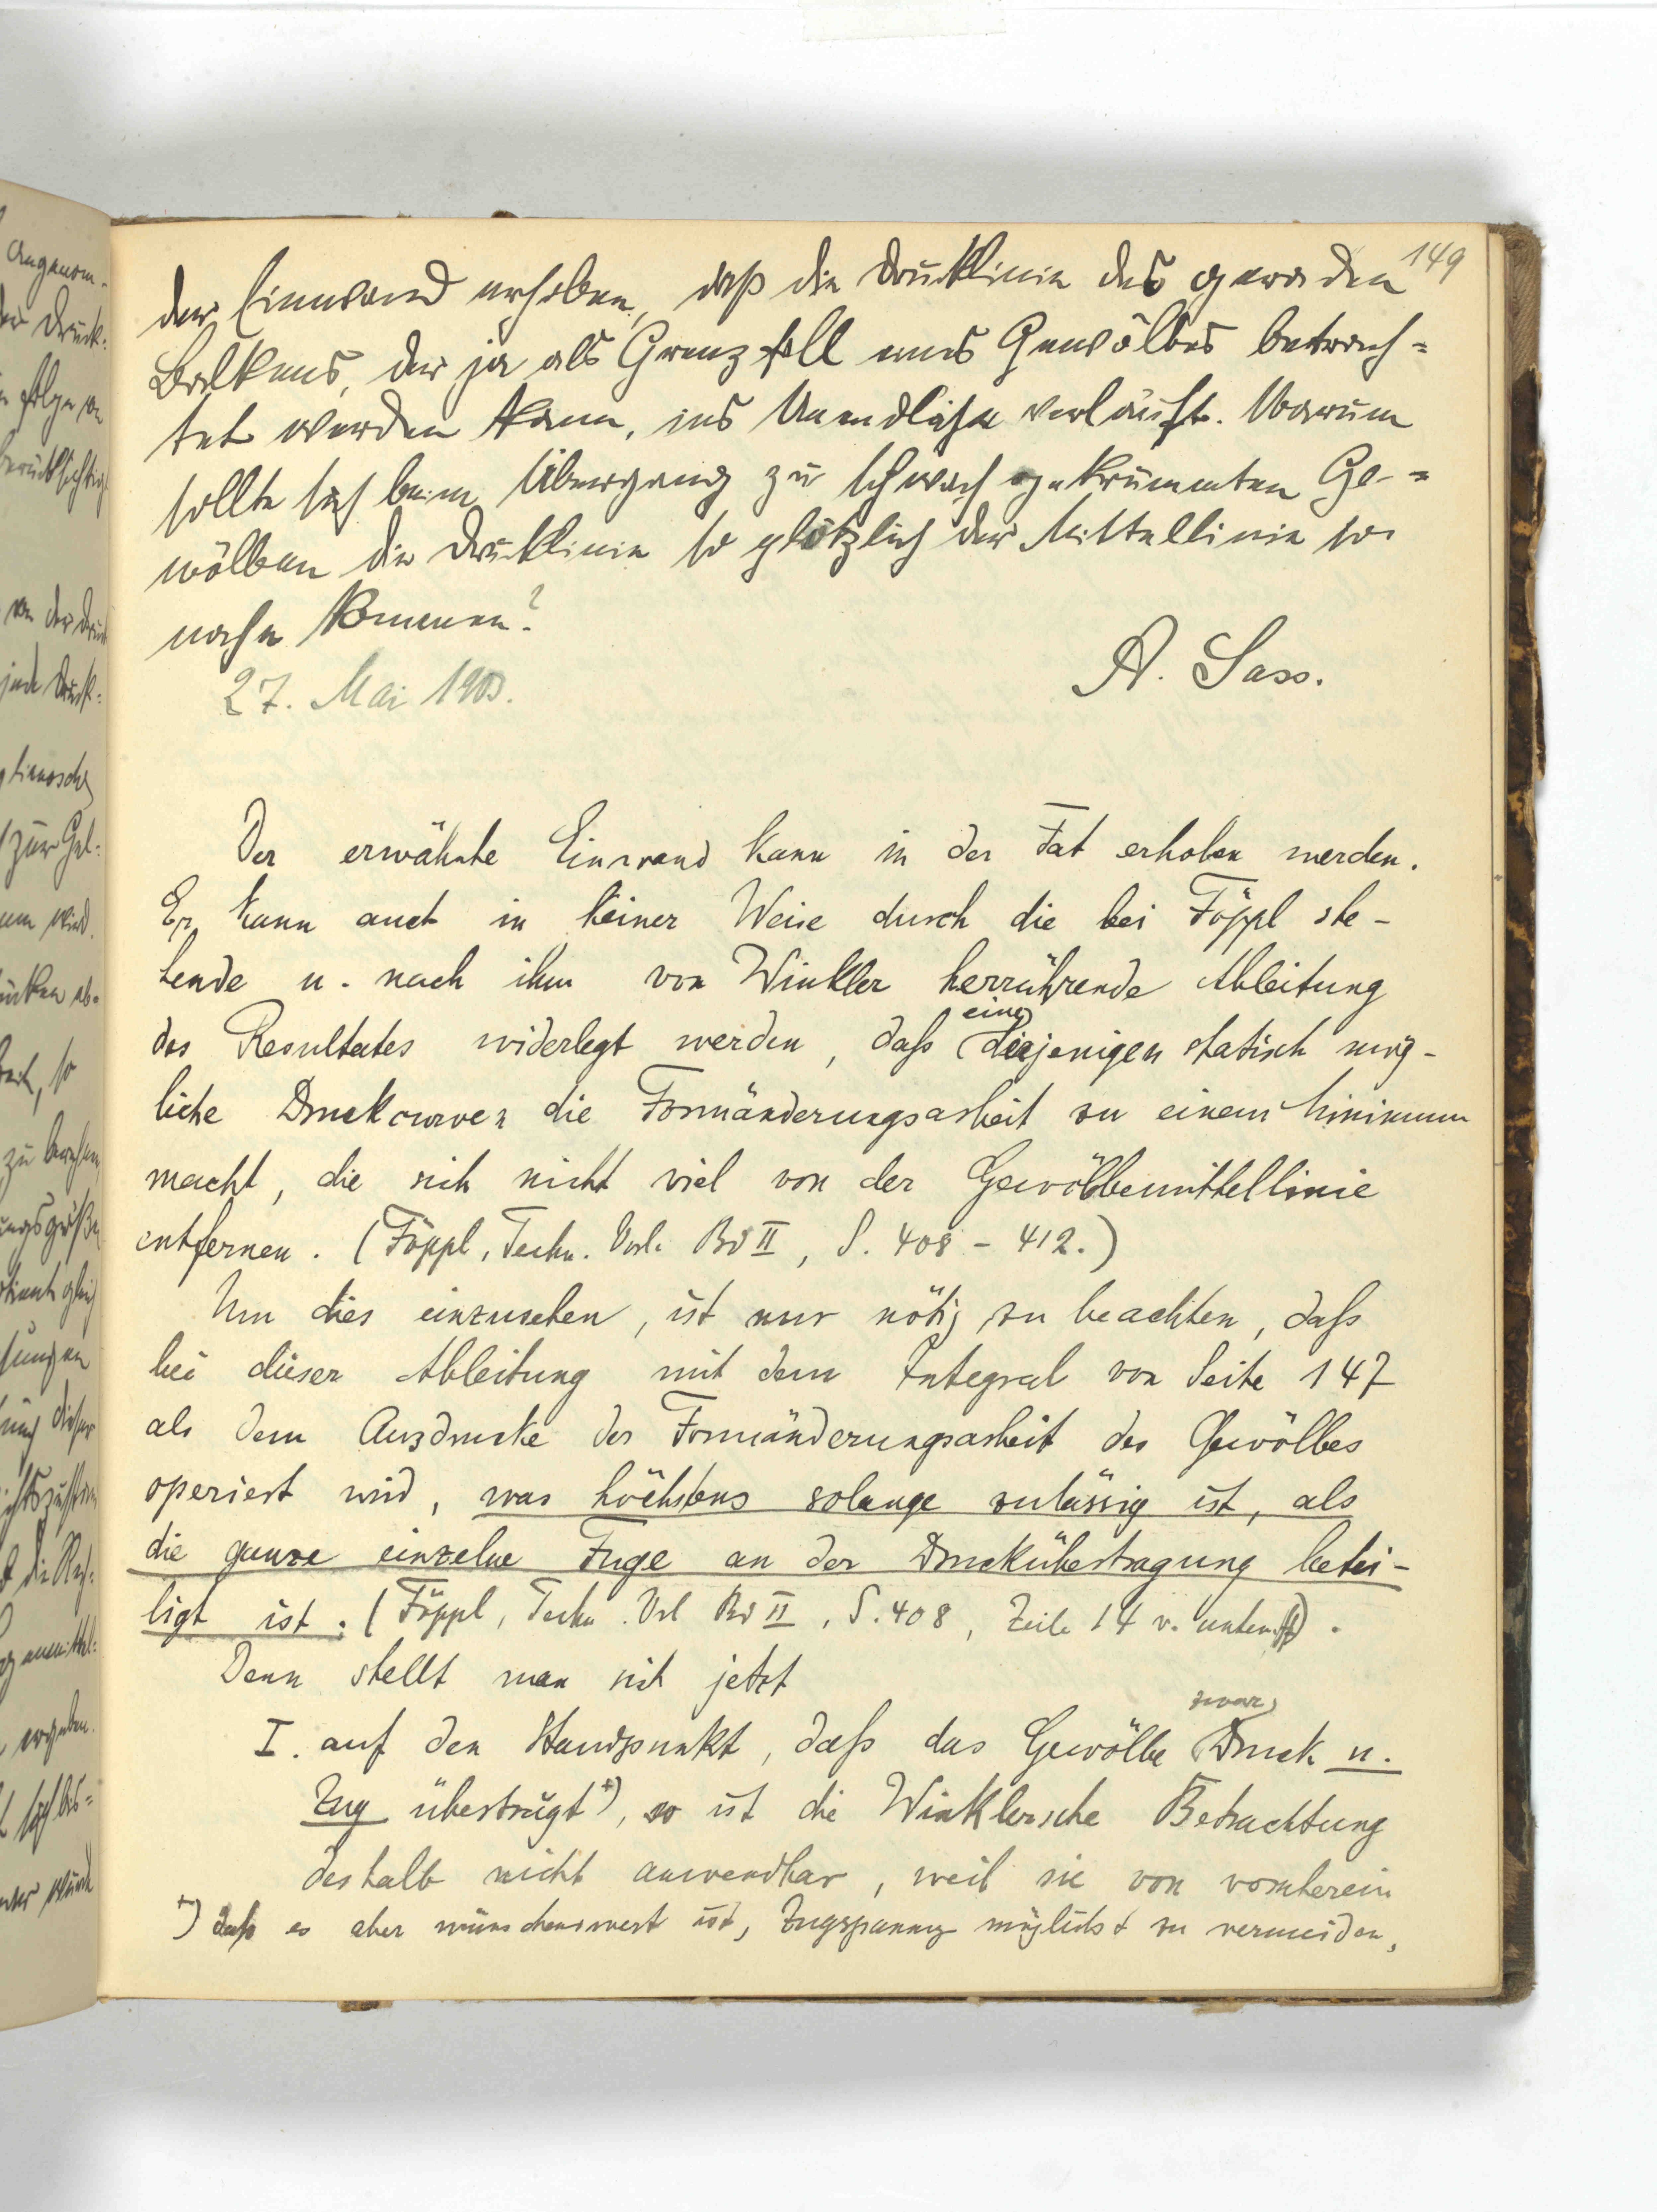 149
der Einwand erhoben, daß die Drucklinie des geraden
Balkens, der ja als Grenzfall eines Gewölbes betrach-
tet werden kann, ins Unendliche verläuft. Warum
sollte sich beim Übergang zu schwach gekrümmten Ge-
wölben die Drucklinie so plötzlich der Mittellinie so
nahe kommen?
A. Sass.
27. Mai 1903.
Der erwähnte Einwand kann in der Tat erhoben werden.
Er kann auch in keiner Weise durch die bei Föppl ste-
hende u. nach ihm von Winkler herrührende Ableitung
des Resultates widerlegt werden, daß eine derjenigen statisch mög-
liche Druckcurven die Formänderungsarbeit zu einem Minimum
macht, die sich nicht viel von der Gewölbemittellinie
entfernen. (Föppl, Techn. Vorl. Bd II, S. 408 - 412.)
Um dies einzusehen, ist nur nötig zu beachten, daß
bei dieser Ableitung mit dem Integral von Seite 147
als dem Ausdrucke der Formänderungsarbeit des Gewölbes
operiert wird, was höchstens solange zulässig ist, als
die ganze einzelne Fuge an der Druckübertragung betei-
ligt ist. (Föppl, Techn. Vorl Bd II, S. 408, Zeile 14 v. unten ff).
Denn stellt man sich jetzt
I. auf den Standpunkt, daß das Gewölbe zwar Druck u.
Zug überträgt +), so ist die Winklersche Betrachtung
deshalb nicht anwendbar, weil sie von vornherein
+) daß es aber wünschenswert ist, Zugspannung möglichst zu vermeiden,